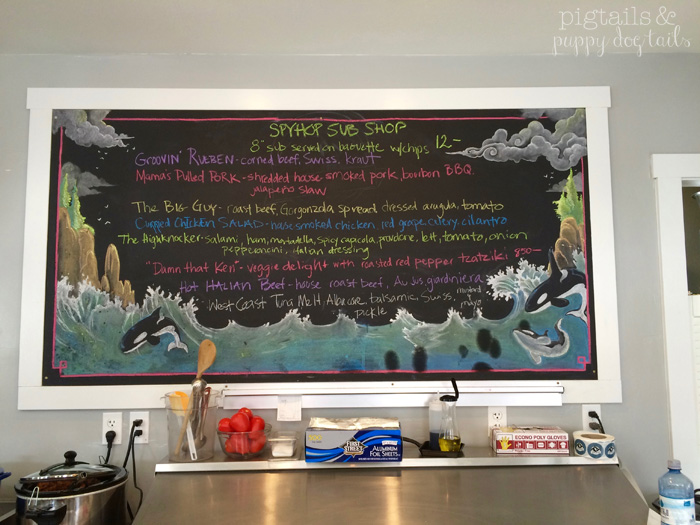 pigtails &
puppy dog tails
SPYHOP SUB SHOP
8" sub served on baguette w/chips 12-
GROOVIN' RUEBEN - corned beef, Swiss, kraut
Mama's Pulled PORK - shredded house smoked pork, bourbon BBQ.
jalapeño slaw
The BIG GUY - roast beef, Gorgonzola spread dressed arugula, tomato
Curried CHICKEN SALAD - house smoked chicken red grape celery cilantro
The Highknocker - salami, ham, mortadella, spicy capicola, provolone, lett, tomato, onion
pepperoncini, italian dressing
"Damn that Ken" - veggie delight with roasted red pepper tzatziki 850-
Hot ITALIAN Beef - house roast beef, Au jus giardiniera
West Coast Tuna Melt, Albacore, balsamic, Swiss, mustard
mayo
pickle
FIRST STREET
ALUMINUM
FOIL SHEETS
ECONO POLY GLOVES